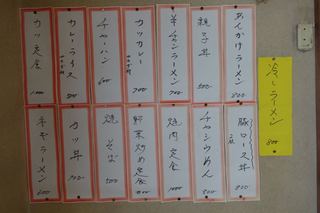 冷しラーメン
800
あんかけラーメン
800
親子丼
500
半チャンラーメン
700
カツカレー
700
チャーハン
600
カレーライス
500
カツ定食
1000
豚ロース丼
800
チャシウめん
800
焼肉定食
1000
野菜炒め定食
焼そば
500
カツ丼
700
ネギラーメン
600